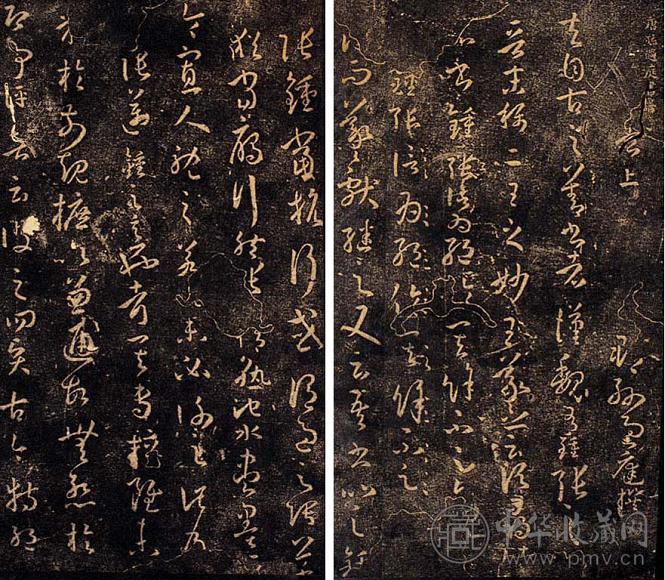 卷上
吳郡孫過庭撰
夫自古之善書者漢魏有鍾張
晉末稱二王之妙王羲之云頃尋諸名
書鍾張信為絕倫其餘不足
鍾張信為絕倫其餘不足
而羲獻繼之又云吾書比之鍾
張鍾當抗行或謂過之張草
猶當鴈行然張精熟池水盡墨
假令寡人耽之若此未必謝之此乃
張邁鍾之意也考其專擅雖未
果於前規摭以兼通故無慙於
即事評者云彼之四賢古今特絕
中华收藏网
www.pmv.cn